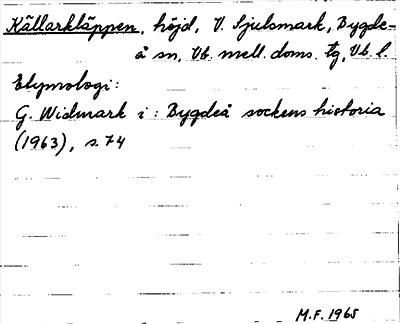 Källarkläppen, höjd, V. Sjulsmark, Bygde-
å sn, Vb. mell. doms. tg, Vb. l.
Etymologi:
G. Widmark i: Bygdeå sockens historia
(1963), s. 74
M.F. 1965